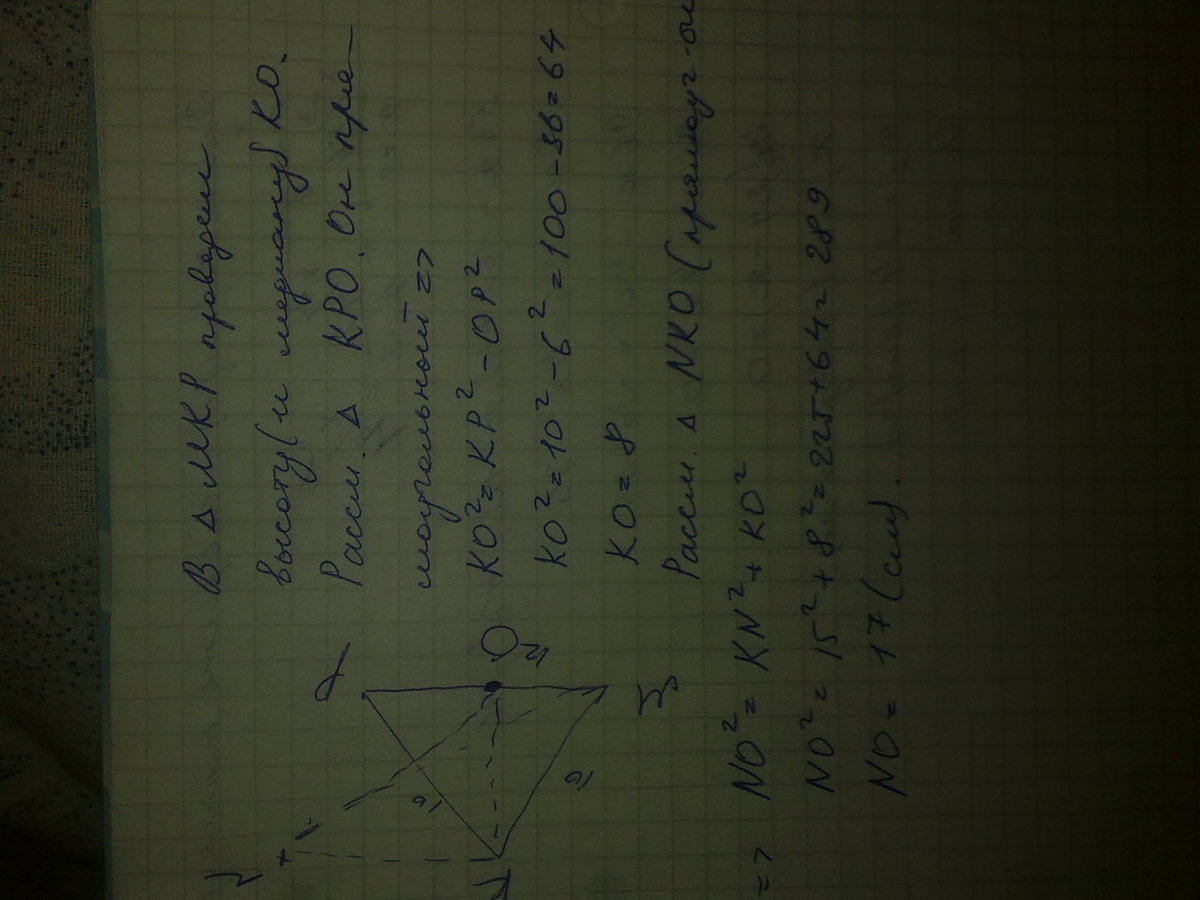 В Δ МКР проведем
высоту (и медиану) КО.
Рассм. Δ КРО. Он пря-
моугольный =>
KO² = KP² - OP²
KO² = 10² - 6² = 100 - 36 = 64
KO = 8
Рассм. Δ NKO (прямоуг-ый
=> NO² = KN² + KO²
NO² = 15² + 8² = 225 + 64 = 289
NO = 17 (см).
P
10
10
O
12